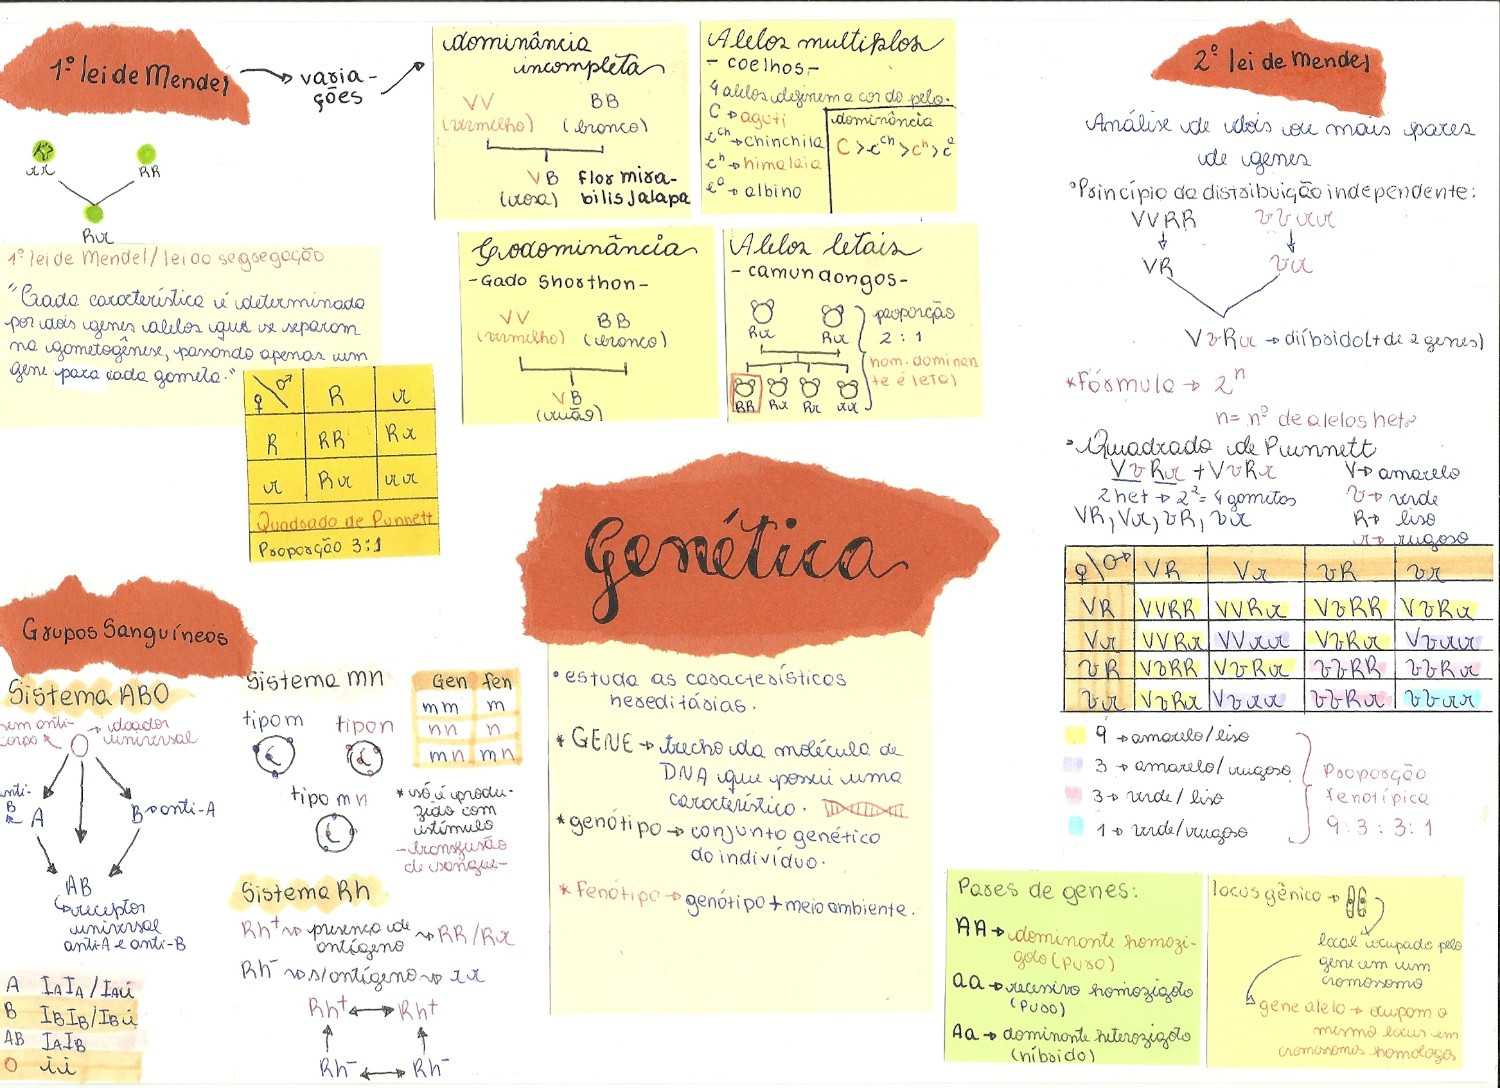 1º lei de Mendel → varia-
ções
rr RR
Rr
1º lei de Mendel / lei da segregação
"Cada característica é determinada
por dois genes alelos que se separam
na gametogênese, passando apenas um
gene para cada gameta."
♀ \ ♂ R r
R RR Rr
r Rr rr
Quadrado de Punnett
Proporção 3:1
dominância
incompleta
VV BB
(vermelho) (branco)
VB Flor mira-
(rosa) bilis Jalapa
Alelos multiplos
- coelhos -
4 alelos definem a cor do pelo.
C → aguti
c^ch → chinchila
c^h → himalaia
c^a → albino
dominância
C > c^ch > c^h > c^a
Codominância
- Gado Shorthon -
VV BB
(vermelho) (branco)
VB
(ruão)
Alelos letais
- camundongos -
Rr Rr
RR Rr Rr rr
proporção
2 : 1
hom. dominan
te é letal
2º lei de Mendel
Análise de dois ou mais pares
de genes
• Princípio da distribuição independente:
VVRR vvrr
VR vr
VvRr → diíbrido (+ de 2 genes)
* Fórmula → 2^n
n = nº de alelos het.
• Quadrado de Punnett
VvRr + VvRr
2 het → 2² = 4 gametas
VR, Vr, vR, vr
V → amarelo
v → verde
R → liso
r → rugoso
♀ \ ♂ VR Vr vR vr
VR VVRR VVRr VvRR VvRr
Vr VVRr VVrr VvRr Vvrr
vR VvRR VvRr vvRR vvRr
vr VvRr Vvrr vvRr vvrr
9 → amarelo/liso
3 → amarelo/rugoso
3 → verde/liso
1 → verde/rugoso
Proporção
fenotípica
9 : 3 : 3 : 1
Genética
• estuda as características
hereditárias.
* GENE → trecho da molécula de
DNA que possui uma
característica.
* genótipo → conjunto genético
do indivíduo.
* Fenótipo → genótipo + meio ambiente.
Grupos Sanguíneos
Sistema ABO
sem anti-
corpo ← O → doador
universal
anti-
B ← A
B → anti-A
AB
↳ receptor
universal
anti-A e anti-B
A IAIA / IAi
B IBIB / IBi
AB IAIB
O ii
Sistema mn
tipo m tipo n
tipo mn
Gen fen
mm m
nn n
mn mn
* só é produ-
zido com
estímulo
- transfusão
de sangue -
Sistema Rh
Rh⁺ → presença de
antígeno → RR/Rr
Rh⁻ → s/antígeno → rr
Rh⁺ ↔ Rh⁺
Rh⁻ ↔ Rh⁻
Pares de genes:
AA → dominante homozi-
goto (puro)
aa → recessivo homozigoto
(puro)
Aa → dominante heterozigoto
(híbrido)
locus gênico →
local ocupado pelo
gene em um
cromossomo
gene alelo → ocupam o
mesmo locus em
cromossomos homólogos